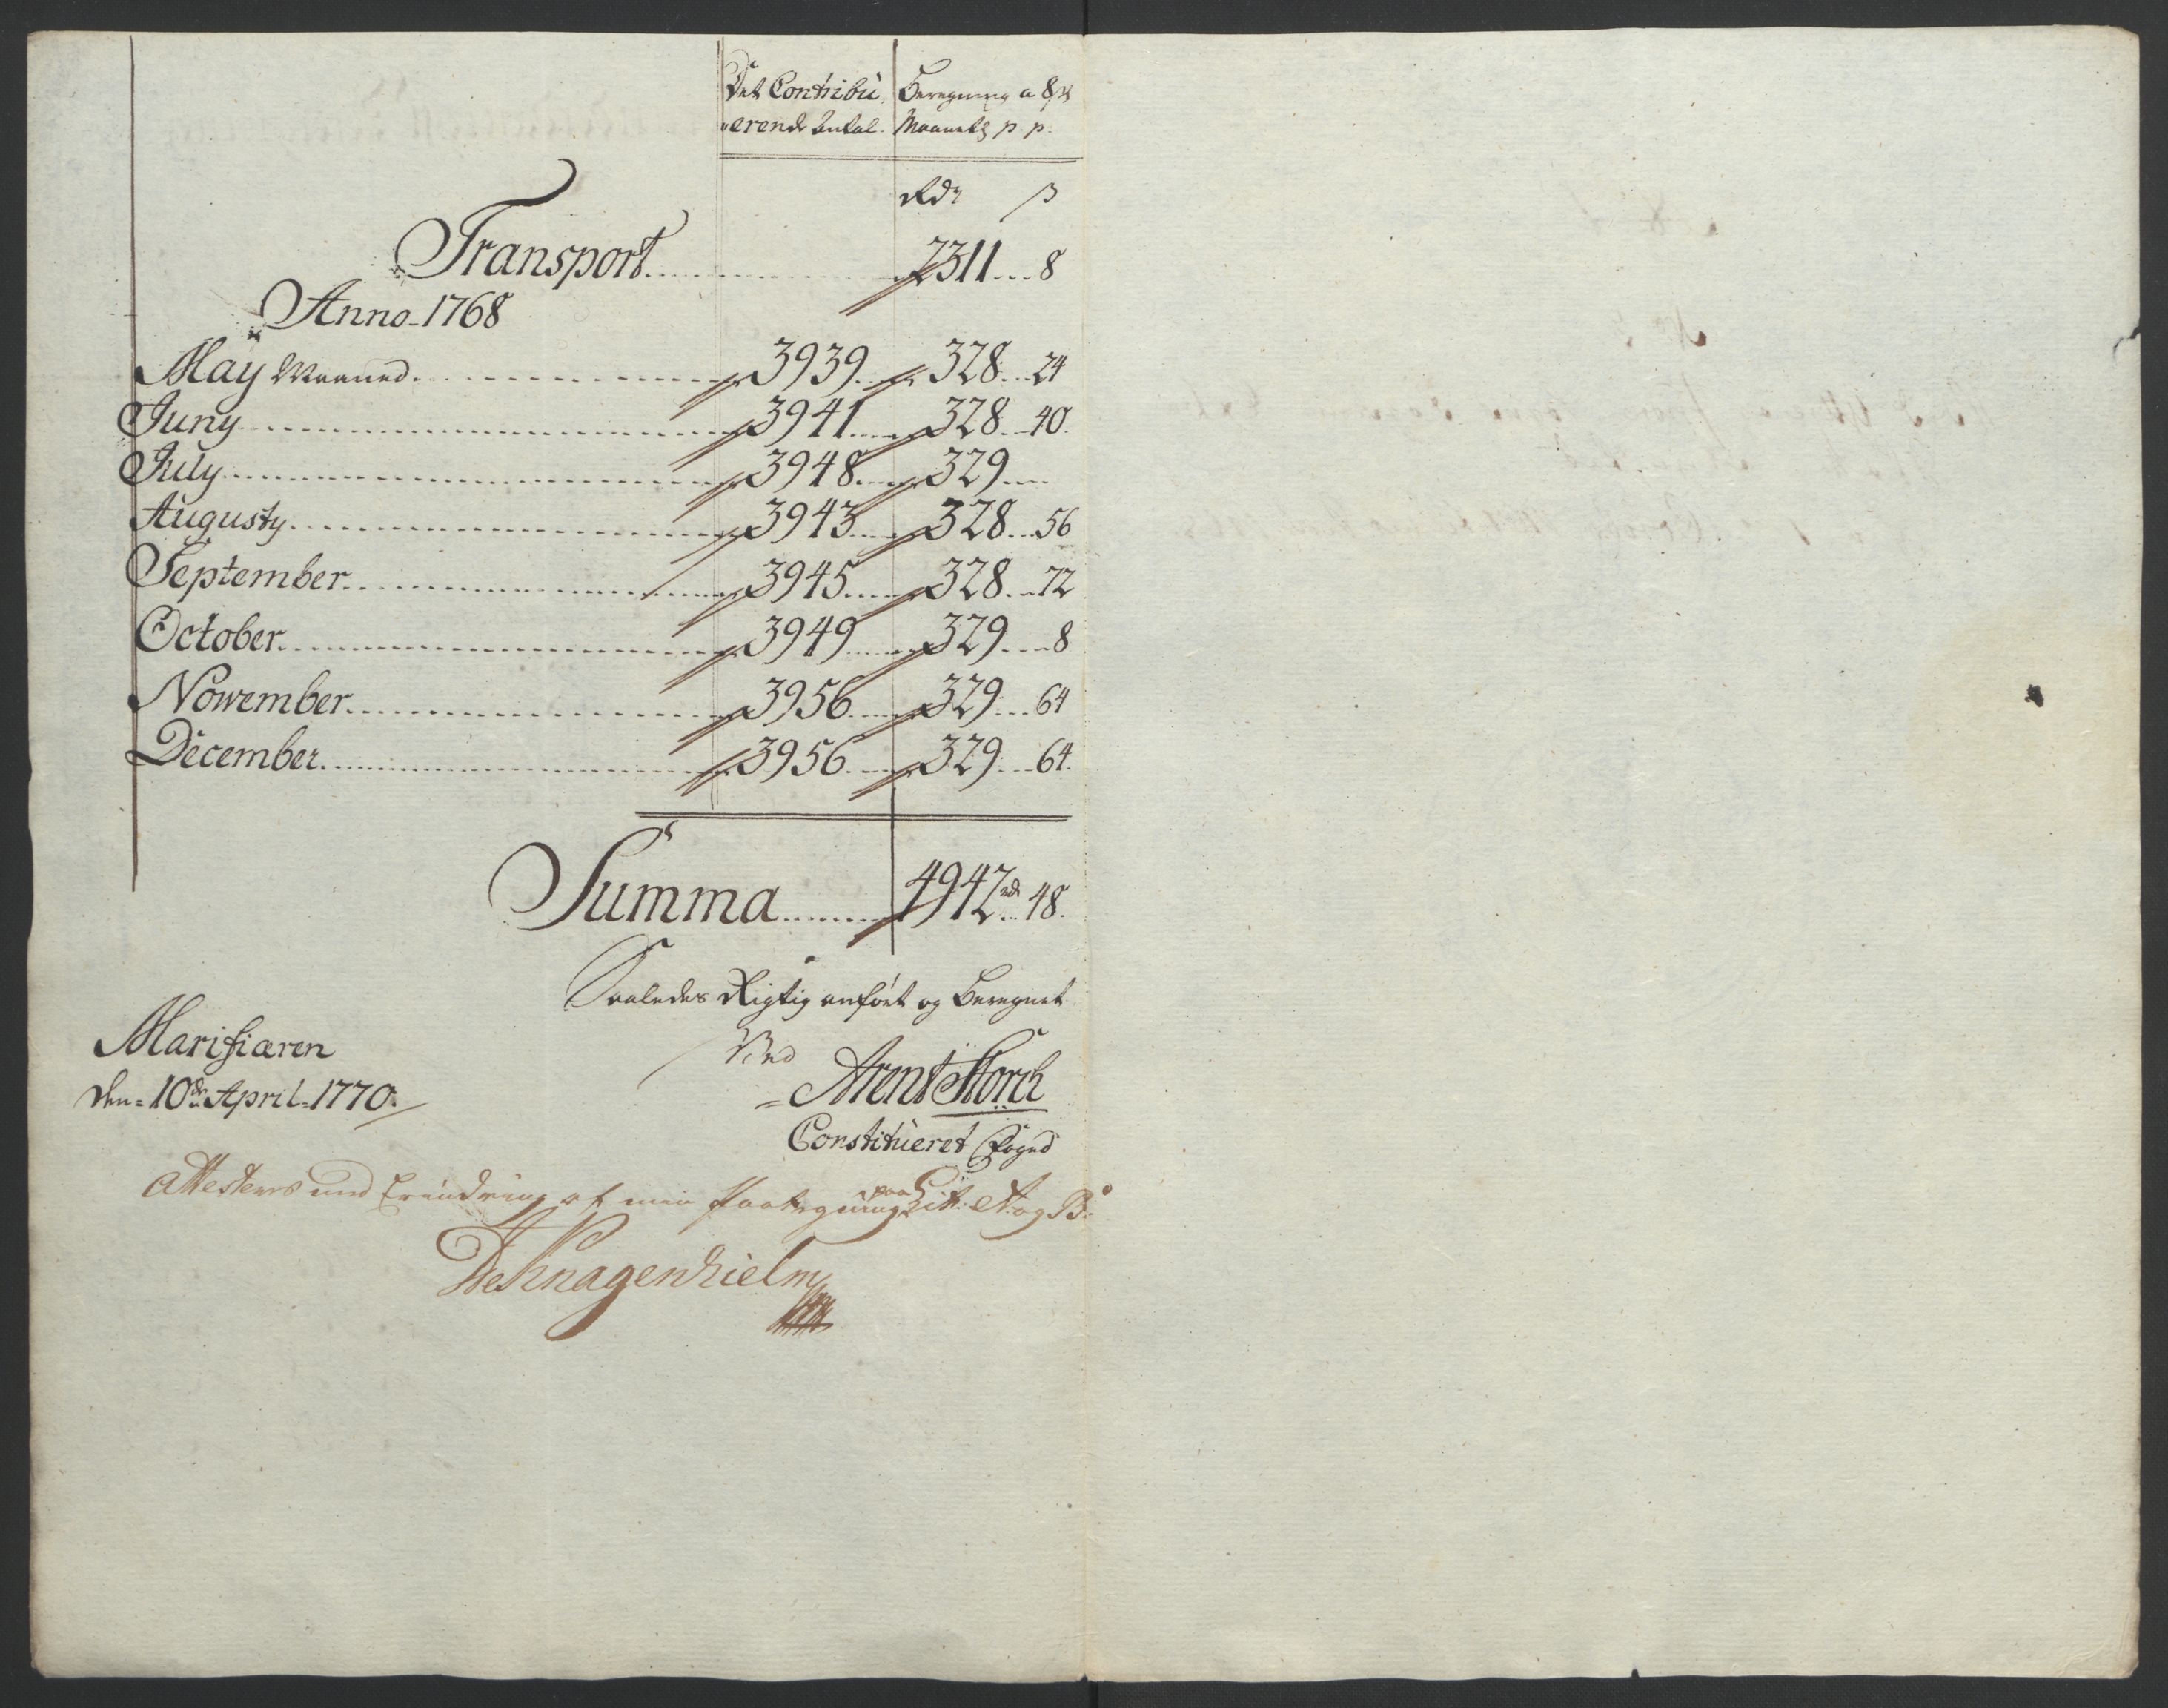 Det Contribu Beregning a 8 s
erende Antal. Maanetl p. p.
Rdr s
Transport ........ 2311 .... 8
Anno 1768
May Maaned ........ 3939 .... 328 ... 24
Juny ........ 3941 .... 328 ... 40.
July ........ 3948 .... 329 ....
Augusty ........ 3943 .... 328 ... 56
September ........ 3945 .... 328 ... 72
October ........ 3949 .... 329 .... 8
Nowember ........ 3956 .... 329 ... 64
December ........ 3956 .... 329 ... 64.
Summa ........ 4942 rd 48.
Saaledes Rigtig anført og Beregnet
Ved
Marifiæren
den 10de April 1770.
Arent Storch
Constitueret Foged
Attesteres med Erindring af min Paategning paa Lit: A: og B:
De Knagenhielm